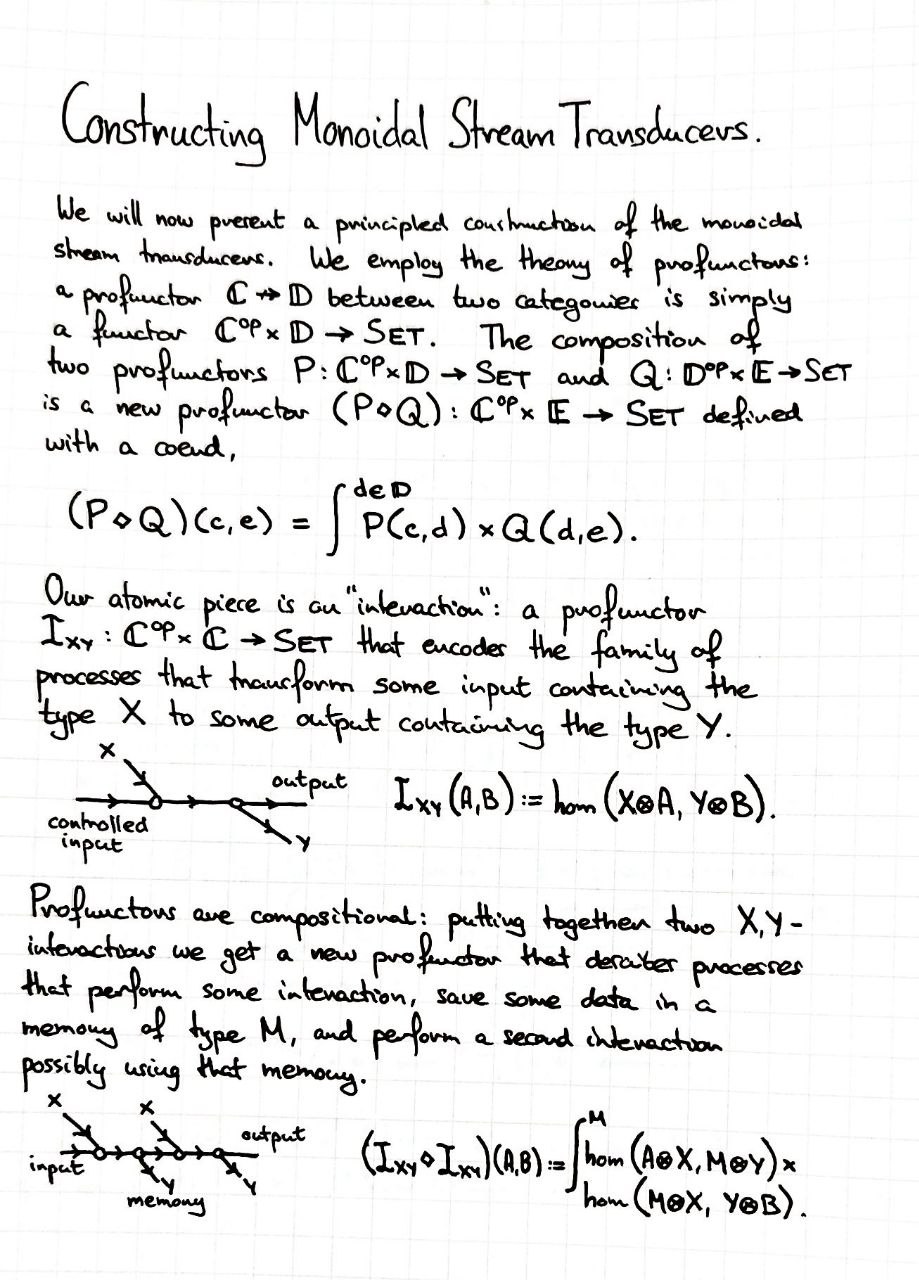 Constructing Monoidal Stream Transducers.
We will now present a principled construction of the monoidal
stream transducers. We employ the theory of profunctors:
a profunctor ℂ ⇸ 𝔻 between two categories is simply
a functor ℂᵒᵖ × 𝔻 → SET. The composition of
two profunctors P: ℂᵒᵖ × 𝔻 → SET and Q: 𝔻ᵒᵖ × 𝔼 → SET
is a new profunctor (P⋄Q) : ℂᵒᵖ × 𝔼 → SET defined
with a coend,
(P⋄Q)(c,e) = ∫^{d∈𝔻} P(c,d) × Q(d,e).
Our atomic piece is an "interaction": a profunctor
I_XY : ℂᵒᵖ × ℂ → SET that encodes the family of
processes that transform some input containing the
type X to some output containing the type Y.
X
output
controlled
input
Y
I_XY (A,B) := hom (X⊗A, Y⊗B).
Profunctors are compositional: putting together two X,Y-
interactions we get a new profunctor that describes processes
that perform some interaction, save some data in a
memory of type M, and perform a second interaction
possibly using that memory.
X X
output
input
Y Y
memory
(I_XY ⋄ I_XY)(A,B) := ∫^M hom (A⊗X, M⊗Y) ×
hom (M⊗X, Y⊗B).